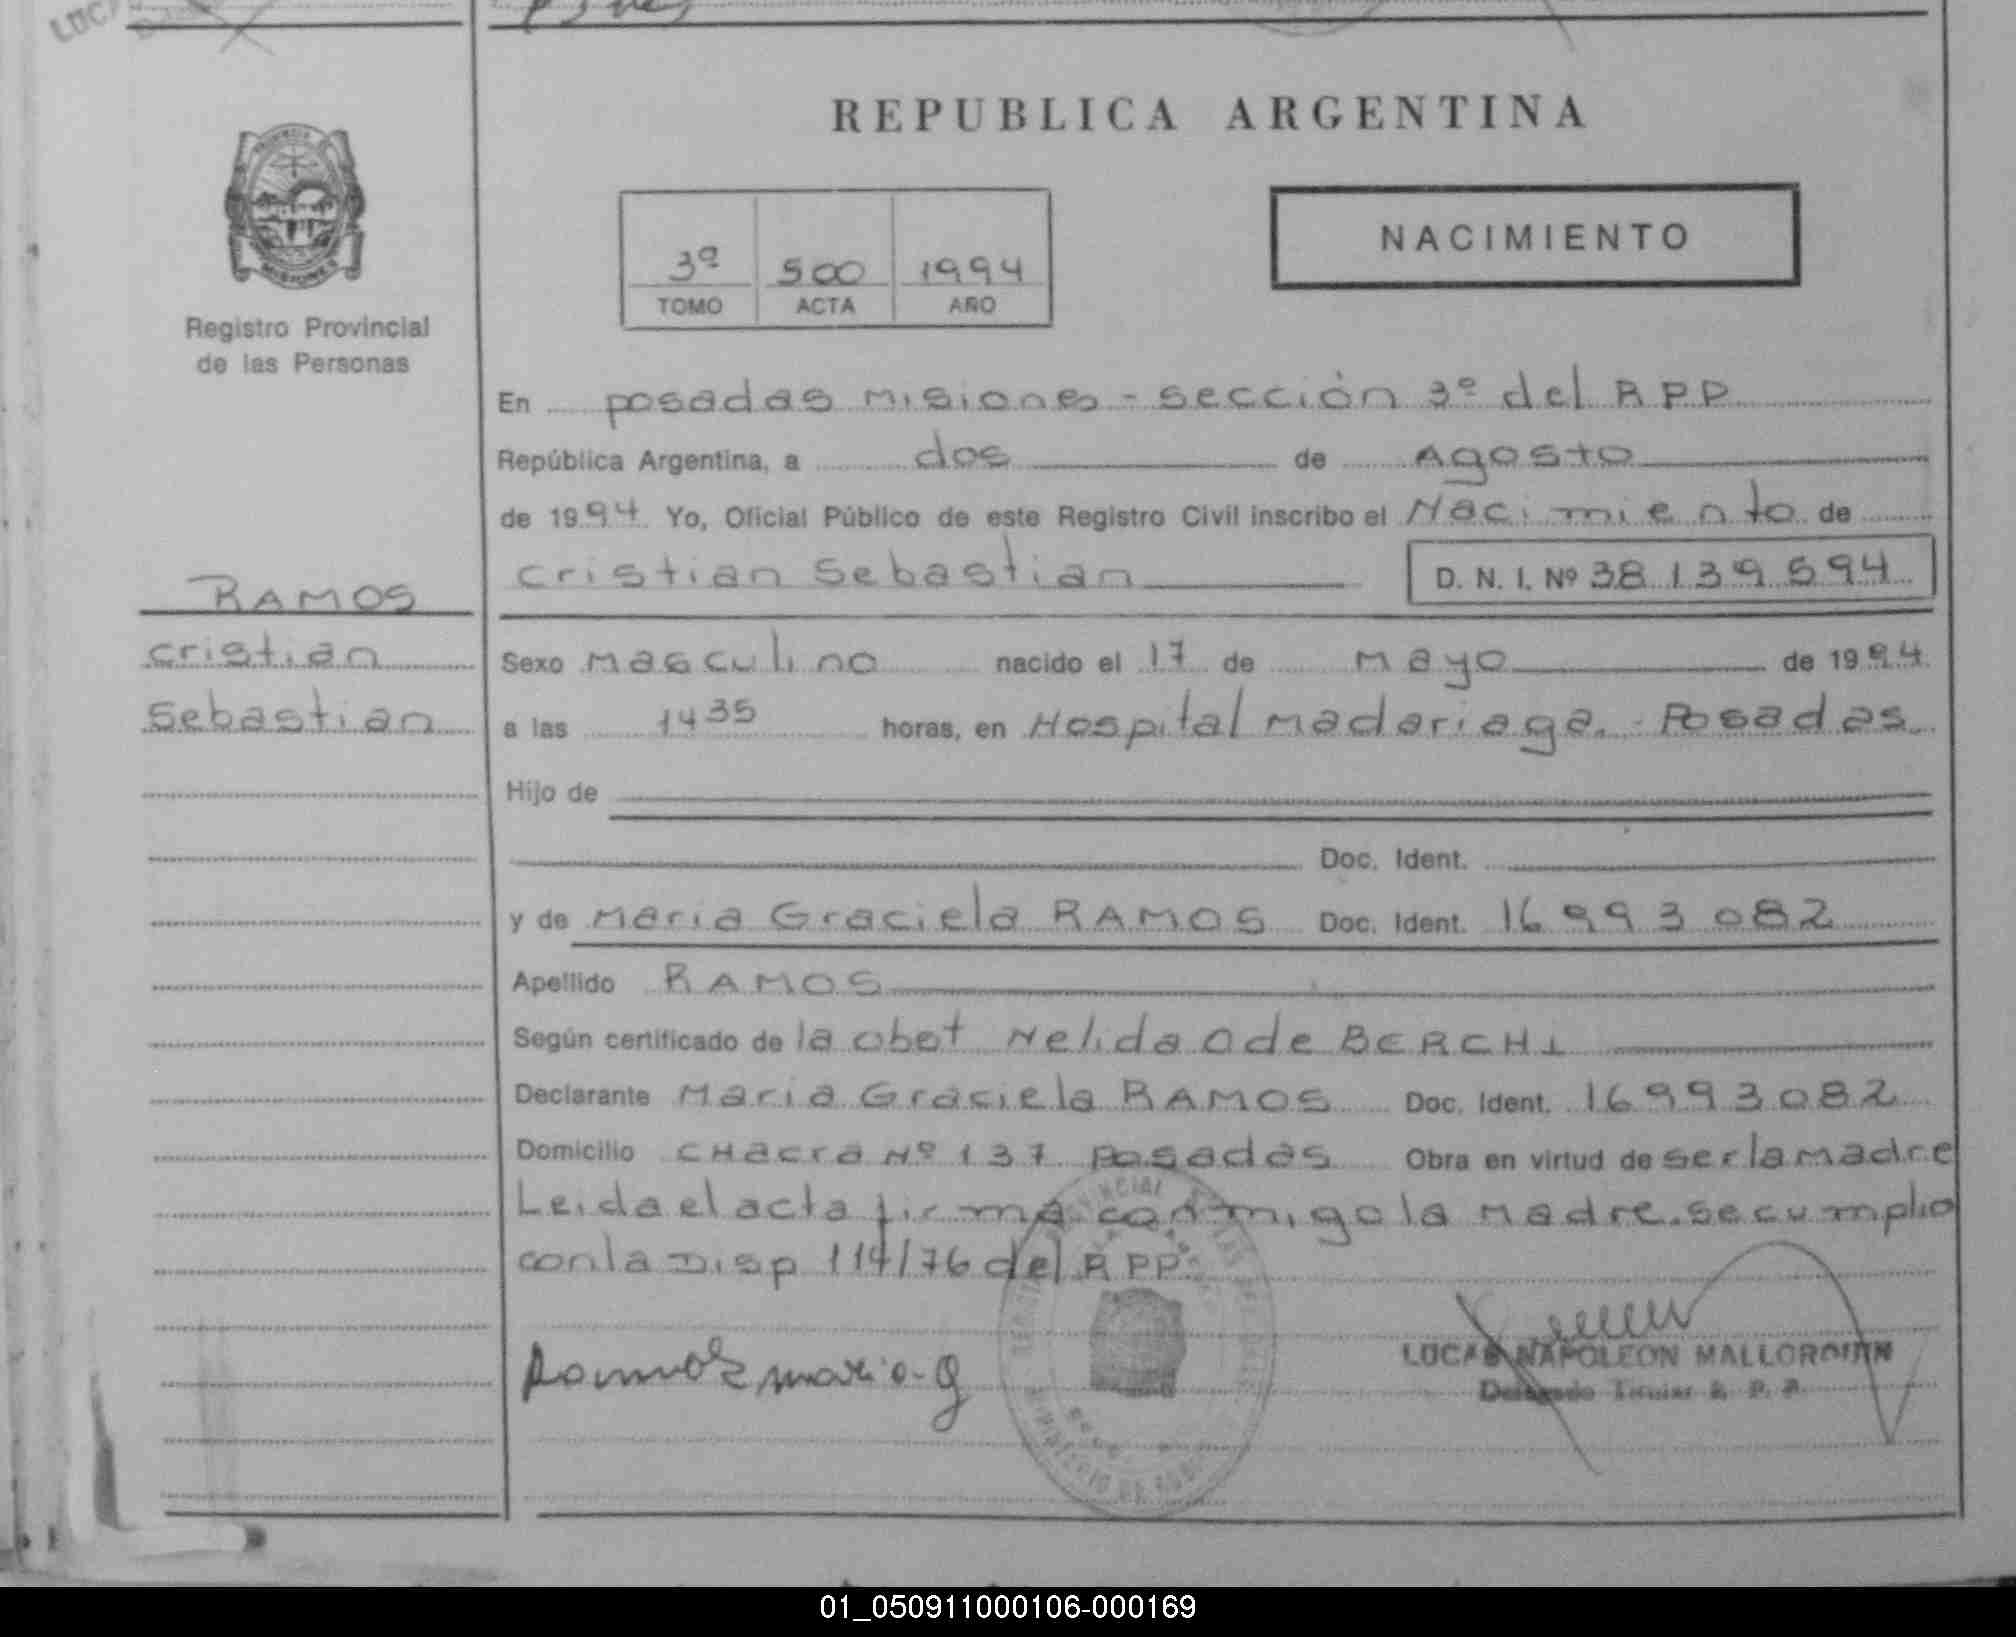 REPUBLICA ARGENTINA
NACIMIENTO
3º 500 1994
TOMO ACTA AÑO
Registro Provincial
de las Personas
En posadas Misiones - sección 3º del RPP
República Argentina, a dos de Agosto
de 1994 Yo, Oficial Público de este Registro Civil inscribo el Nacimiento de
cristian Sebastian D. N. I. Nº 38 139 594
RAMOS
cristian
Sebastian
Sexo Masculino nacido el 17 de Mayo de 1994
a las 14 35 horas, en Hospital Madariaga. - Posadas
Hijo de
Doc. Ident.
y de Maria Graciela RAMOS Doc. Ident. 16 993 082
Apellido RAMOS
Según certificado de la obst Nelida O de BERCHI
Declarante Maria Graciela RAMOS Doc. Ident. 16993082
Domicilio CHacra Nº 137 Posadas Obra en virtud de ser la madre
Leida el acta firma conmigo la Madre. se cumplio
con la Disp 114/76 del RPP.
Ramos maria G
LUCAS NAPOLEON MALLORQUIN
Delegado Titular R. P. P.
01_050911000106-000169